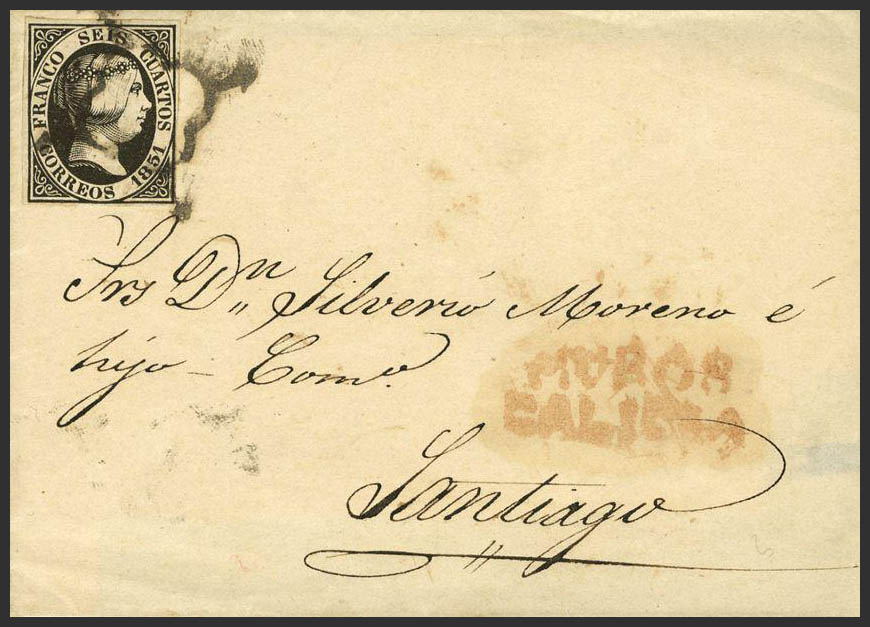 FRANCO SEIS CUARTOS
CORREOS 1851
Srs Dn Silverio Moreno é
hijo - Comº
MUROS
GALICIA
Santiago